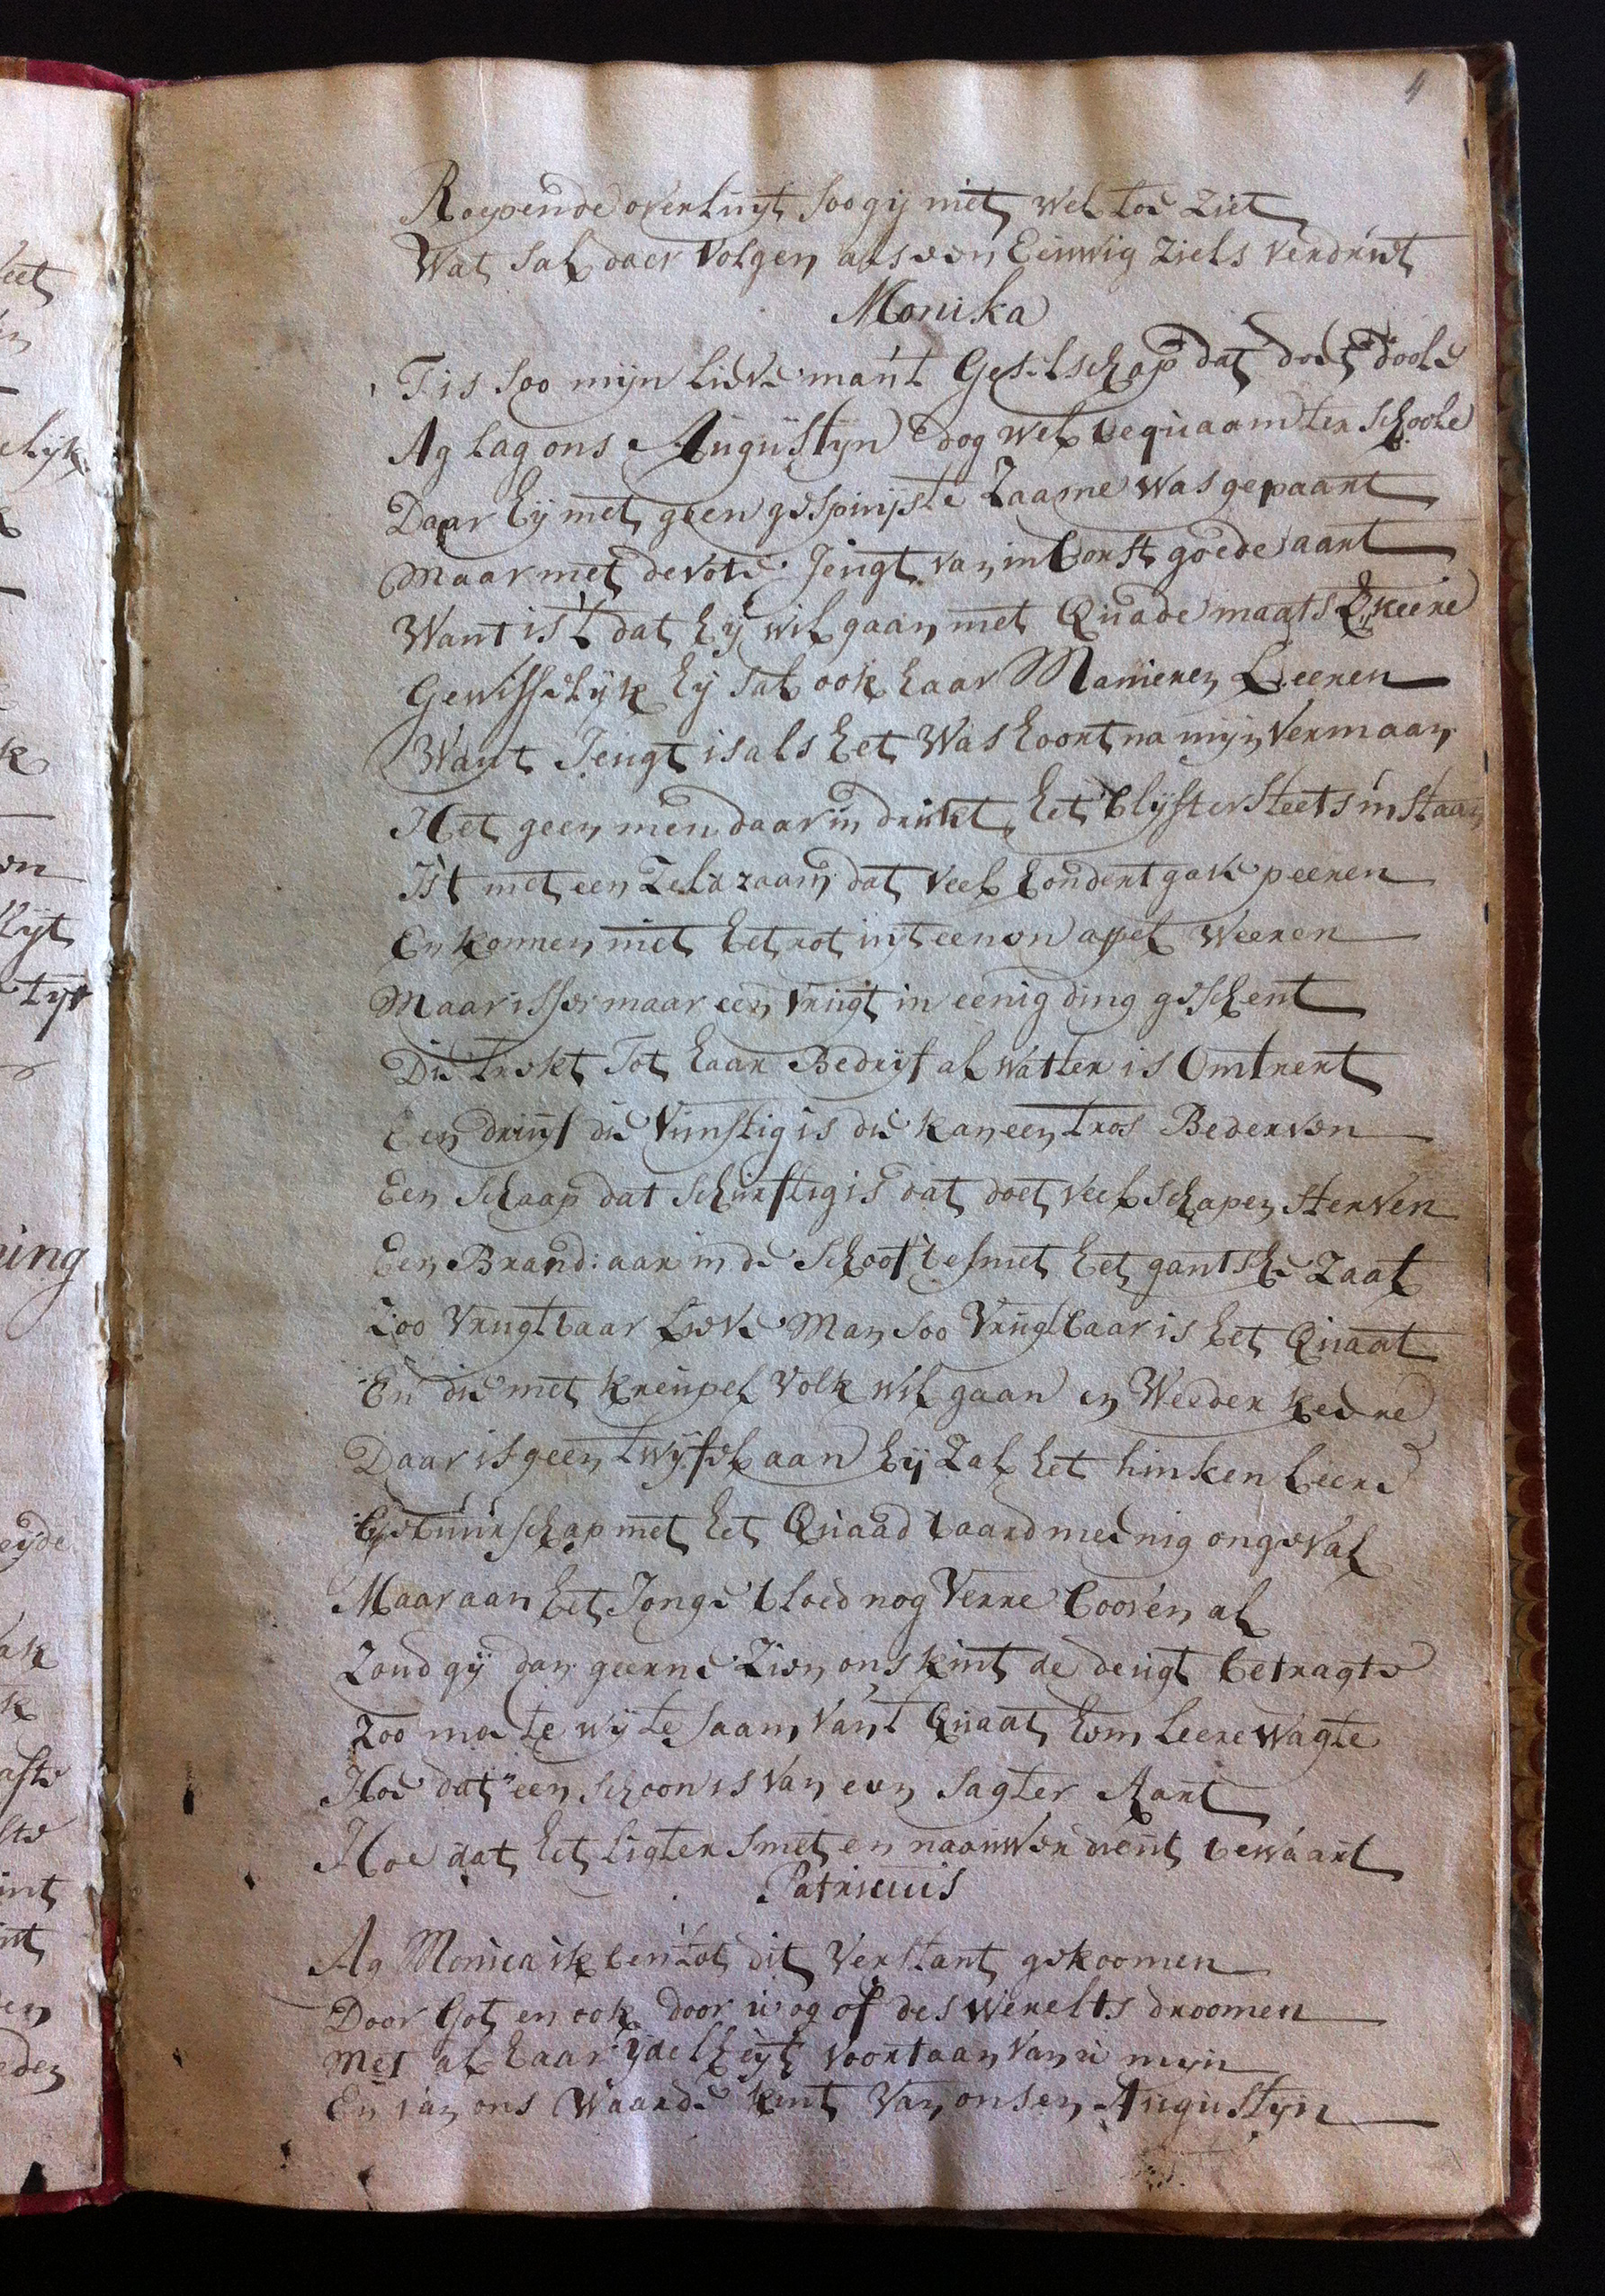 4
Roepende overluijt soo gij niet wel toe ziet
Wat sal daer volgen als een Eeuwig ziels verdriet
Monika
T is soo mijn lieve man 't Geselschap dat doet doole
Ag lag ons Augustijn dog wel bequaam ter schoole
Daar hij met geen gespuijste zaame was gepaart
Maar met devote Jeugt van inborst goede aart
Want is 't dat hij wil gaan met Quade maats verkeere
Gewisselijk hij sal ook haar Manieren Leeren
Want Jeugt is als het Was hoort na mijn vermaan
Het geen men daar in drukt het blijfter steets in staan
Ist met een zelzzaam dat veel hondert gave peeren
En konnen niet het rot in 't eenen appel Weeren
Maar isser maar een vrugt in eenig ding geschent
Die trekt Tot haar Bedrijf al watter is Omtrent
Een druijf die Vunstig is die kan een tros Bederven
Een schaap dat schurftig is dat doet veel schapen sterven
Een Brand: aar in de schoof besmet het gantsche zaat
Zoo Vrugtbaar Lieve Man soo Vrugtbaar is het Quaat
En die met kreupel Volk wil gaan en Weeder keere
Daar is geen twijfel aan hij zal het hinken Leere
Gebuurschap met het Quaad baard meenig ongeval
Maar aan het Jonge bloed nog Verre booven al
Zoud gij dan geerne zien ons kint de deugt betragte
Zoo moete wij te saam van 't Quaat hem leere wagte
Hoe dat een schoon is van een sagter Aart
Hoe dat het ligter smet en naauwer dient bewaart
Patricius
Ag Monica ik ben tot dit Verstant gekoomen
Door Got en ook door u og of des werelts droomen
Met al haar ijdelheijt voortaan van u mijn
En van ons Waarde kint Van onsen Augustijn